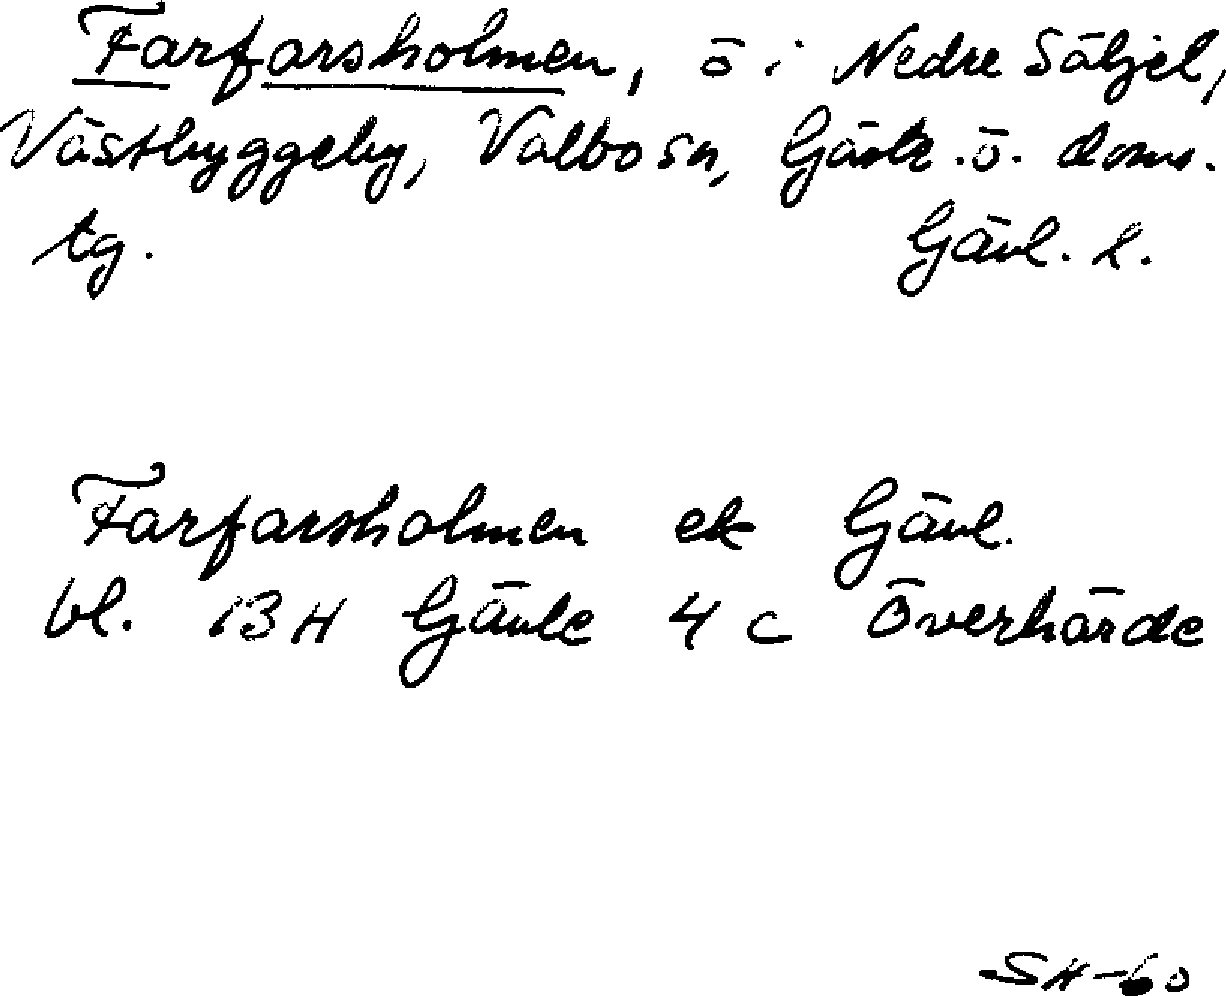 Farfarsholmen, ö i Nedre Säljel,
Västbyggeby, Valbo sn, Gästr. ö. doms.
tg. Gävl. l.
Farfarsholmen ek Gävl.
bl. 13H Gävle 4 c Överhärde
SH-60